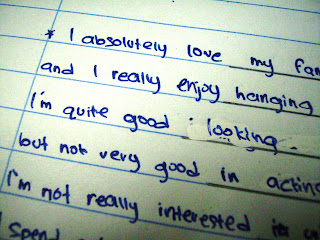 * I absolutely love my fam
and I really enjoy hanging
I'm quite good looking.
but not very good in acting
I'm not really interested
I spend